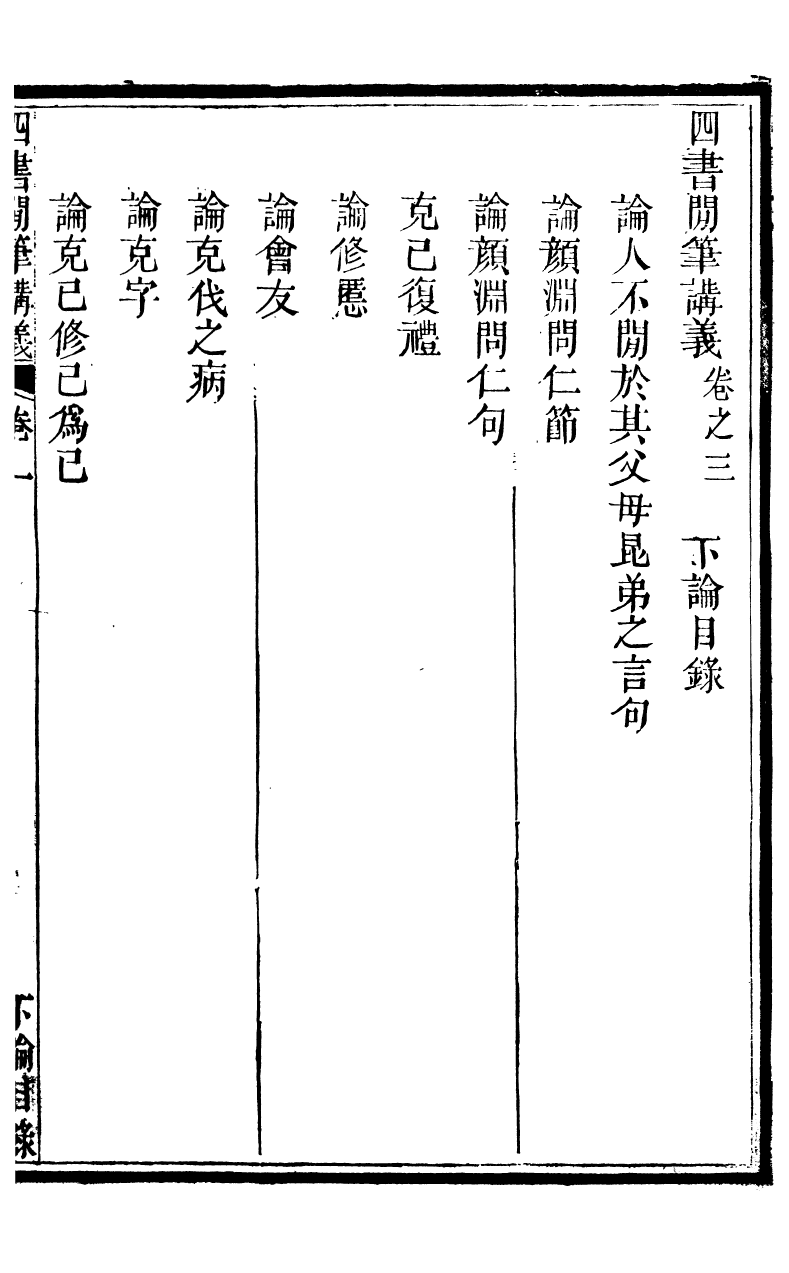 四書閒筆講義卷之三　下論目錄
論人不閒於其父母昆弟之言句
論顏淵問仁節
論顏淵問仁句
克己復禮
論修慝
論會友
論克伐之病
論克字
論克己修己爲己
四書閒筆講義　卷　下論目錄